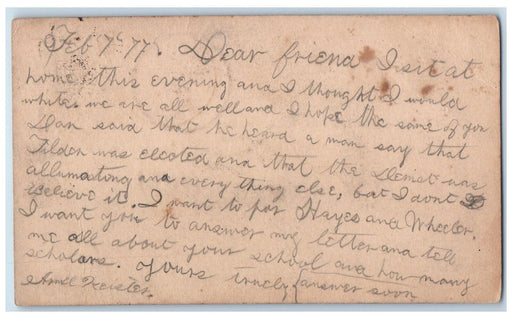 Feb 7" 77 Dear friend I sit at
home this evening and I thought I would
write. we are all well and I hope the same of you
Dan said that he heard a man say that
Tilden was elected and that the was
and every thing else, but I dont
believe it. I want to for Hayes and Wheeler.
I want you to answer my letter and tell
me all about your school and how many
scholars. yours truely answer soon
Keister.